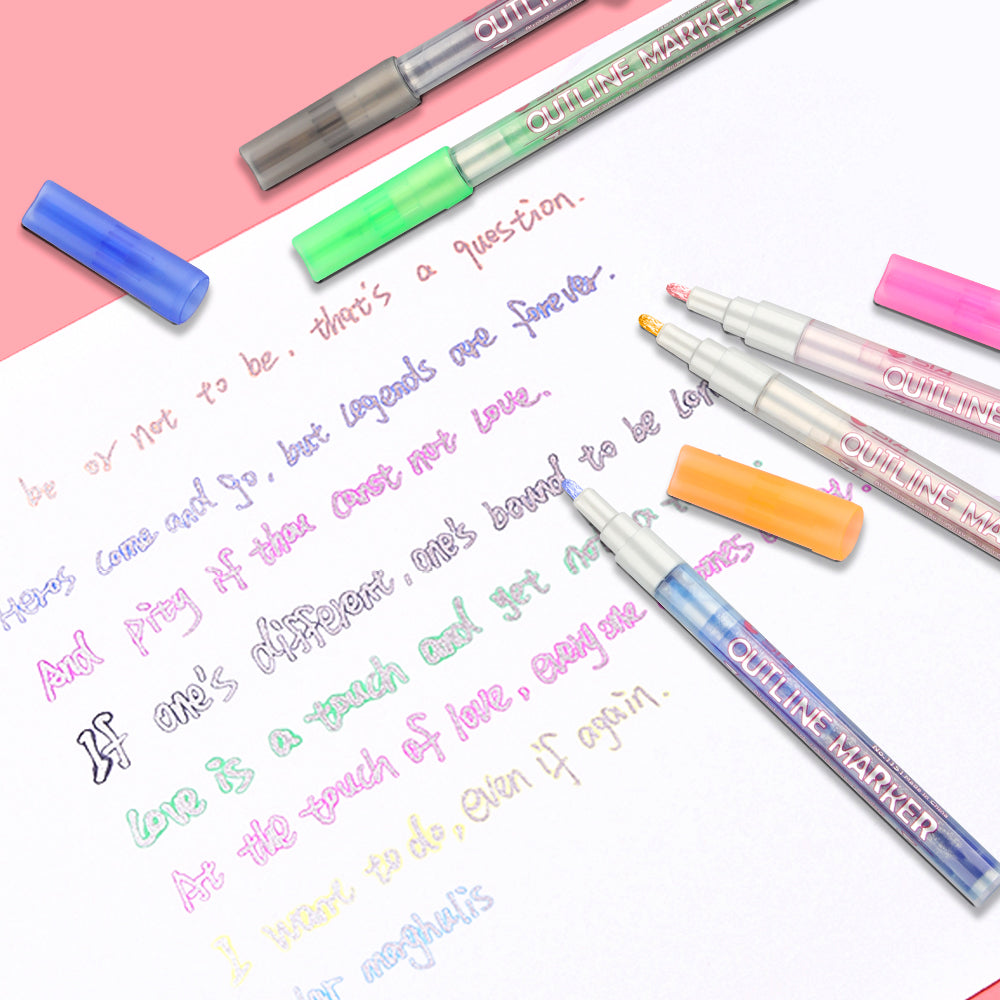 OUTLINE
OUTLINE MARKER
be or not to be. that's a question.
Heros come and go, but legends are forever.
And pity if thou canst not love.
If one's different, one's bound to be
Love is a touch and yet not a
At the touch of love, every one
I want to do, even if again.
maghulis
OUTLINE
OUTLINE MA
OUTLINE MARKER